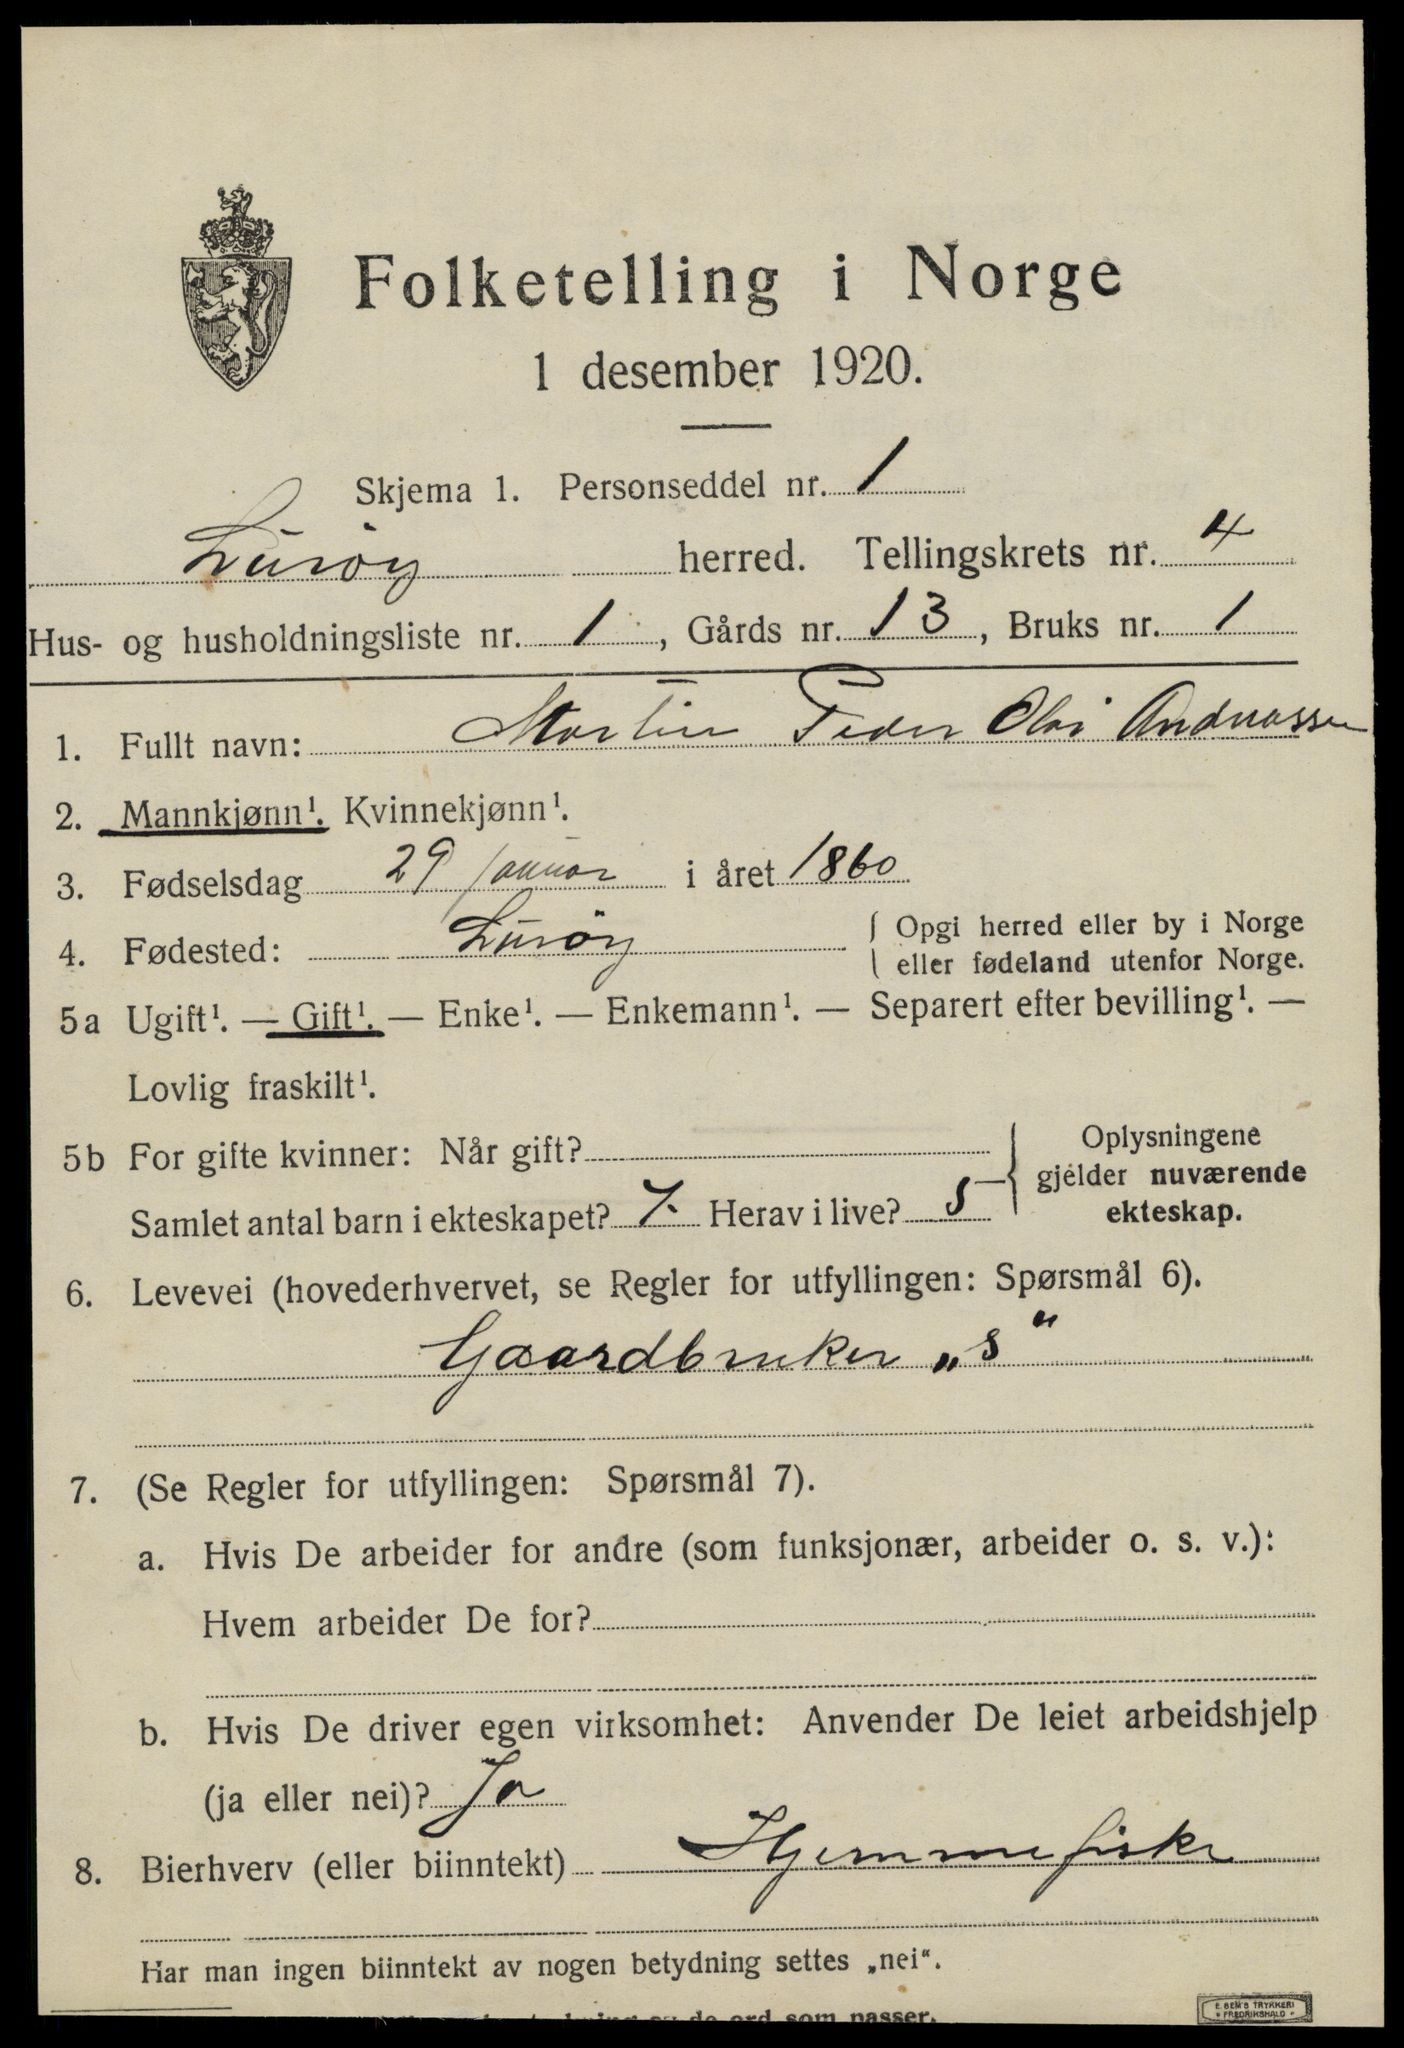 Folketelling i Norge
1 desember 1920.
Skjema 1. Personseddel nr. 1
Lurøy herred. Tellingskrets nr. 4
Hus- og husholdningsliste nr. 1, Gårds nr. 13, Bruks nr. 1
1. Fullt navn: Martin Peder Olai Andreassen
2. Mannkjønn¹. Kvinnekjønn¹.
3. Fødselsdag 29 januar i året 1860
4. Fødested: Lurøy { Opgi herred eller by i Norge
eller fødeland utenfor Norge.
5a Ugift¹. — Gift¹. — Enke¹. — Enkemann¹. — Separert efter bevilling¹. —
Lovlig fraskilt¹.
5b For gifte kvinner: Når gift?
Samlet antal barn i ekteskapet? 7. Herav i live? 5
Oplysningene
gjelder nuværende
ekteskap.
6. Levevei (hovederhvervet, se Regler for utfyllingen: Spørsmål 6).
Gaardbruker „s“
7. (Se Regler for utfyllingen: Spørsmål 7).
a. Hvis De arbeider for andre (som funksjonær, arbeider o. s. v.):
Hvem arbeider De for?
b. Hvis De driver egen virksomhet: Anvender De leiet arbeidshjelp
(ja eller nei)? Ja
8. Bierhverv (eller biinntekt) Hjemmefiske
Har man ingen biinntekt av nogen betydning settes „nei“.
de ord som passer.
E. SEM'S TRYKKERI
FREDRIKSHALD